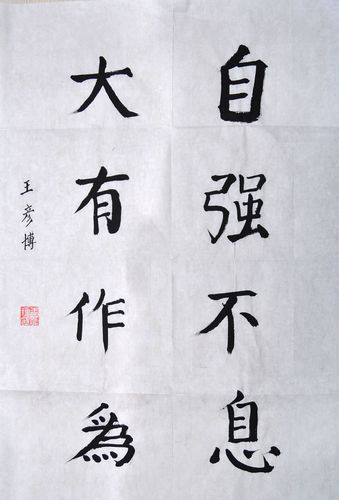 自强不息
大有作為
王彦博